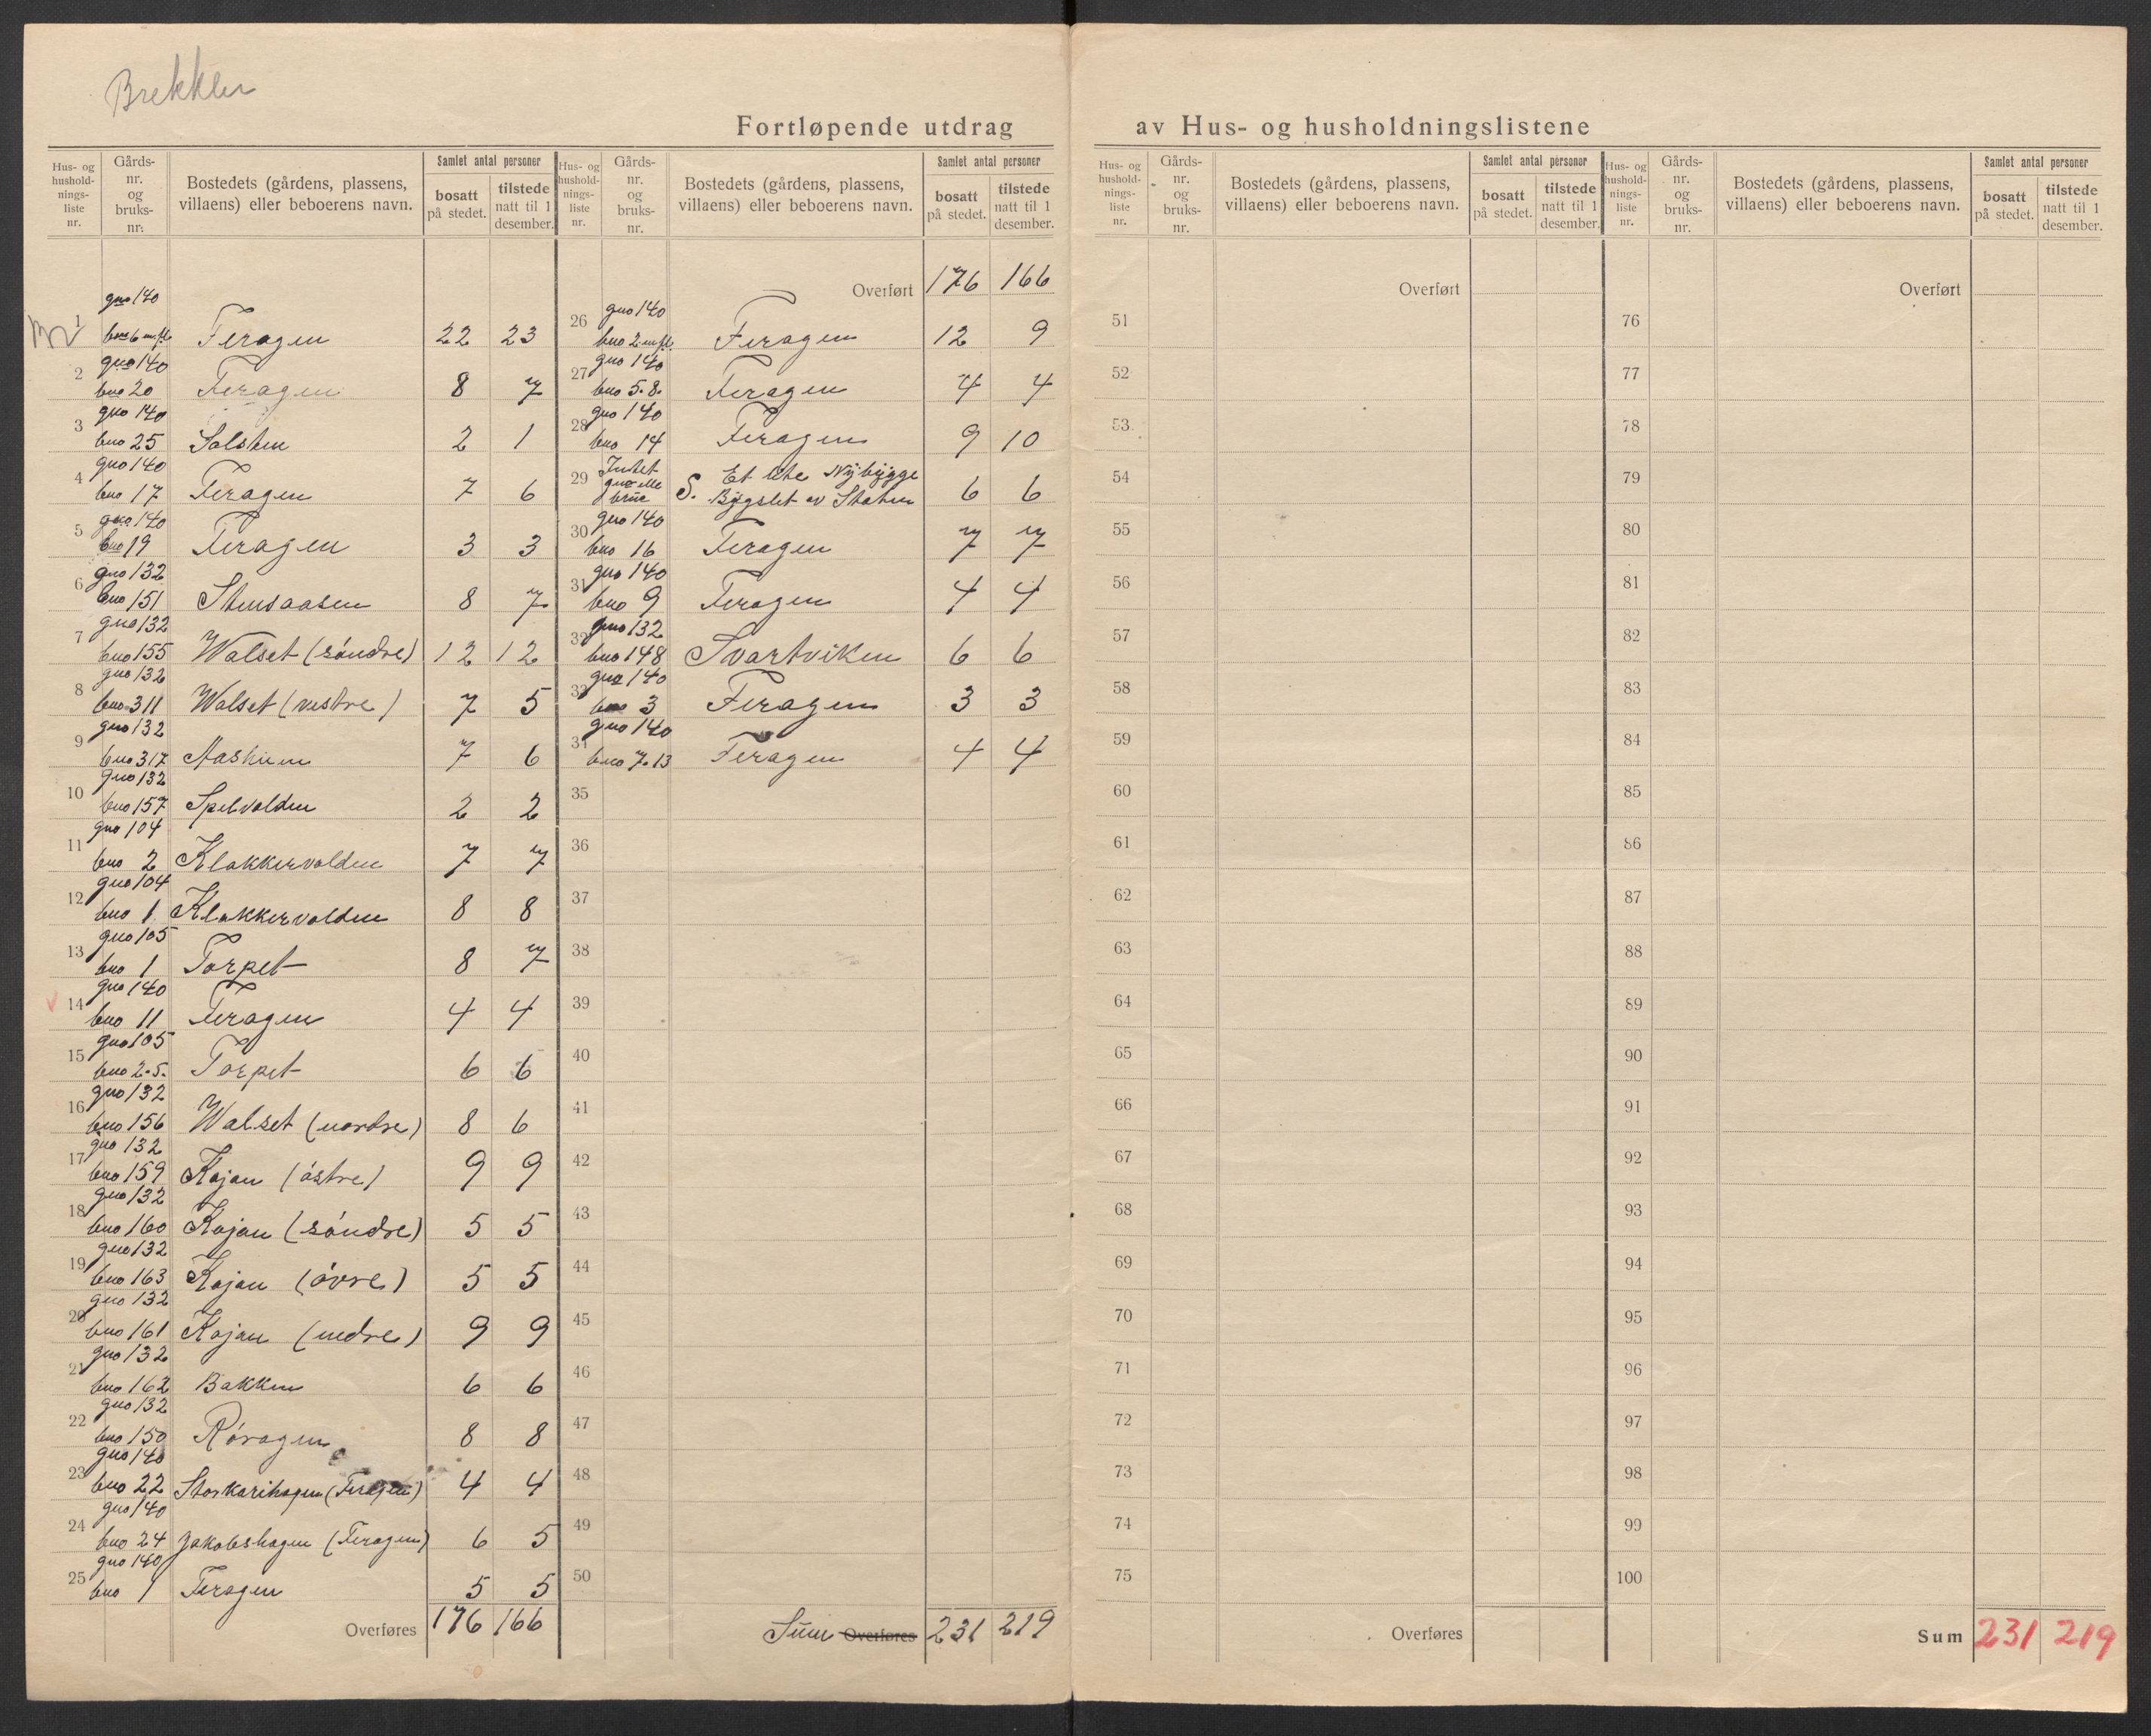 Brekken
Fortløpende utdrag av Hus- og husholdningslistene
Hus- og hushold-nings-liste nr. Gårds-nr. og bruks-nr. Bostedets (gårdens, plassens, villaens) eller beboerens navn. Samlet antal personer bosatt på stedet. tilstede natt til 1 desember.
1 gno 140 bno 6 m.fl. Feragen 22 23
2 gno 140 bno 20 Feragen 8 7
3 gno 140 bno 25 Solsten 2 1
4 gno 140 bno 17 Feragen 7 6
5 gno 140 bno 19 Feragen 3 3
6 gno 132 bno 151 Stensaasen 8 7
7 gno 132 bno 155 Walset (söndre) 12 12
8 gno 132 bno 311 Walset (vestre) 7 5
9 gno 132 bno 317 Aasheim 7 6
10 gno 132 bno 157 Spelvolden 2 2
11 gno 104 bno 2 Klokkervolden 7 7
12 gno 104 bno 1 Klokkervolden 8 8
13 gno 105 bno 1 Torpet 8 7
14 gno 140 bno 11 Feragen 4 4
15 gno 105 bno 2-5. Torpet 6 6
16 gno 132 bno 156 Walset (nordre) 8 6
17 gno 132 bno 159 Kojan (östre) 9 9
18 gno 132 bno 160 Kojan (söndre) 5 5
19 gno 132 bno 163 Kojan (övre) 5 5
20 gno 132 bno 161 Kojan (nedre) 9 9
21 gno 132 bno 162 Bakken 6 6
22 gno 132 bno 150 Röragen 8 8
23 gno 140 bno 22 Storkarihagen (Feragen) 4 4
24 gno 140 bno 24 Jakobshagen (Feragen) 6 5
25 gno 140 bno 1 Feragen 5 5
Overføres 176 166
Hus- og hushold-nings-liste nr. Gårds-nr. og bruks-nr. Bostedets (gårdens, plassens, villaens) eller beboerens navn. Samlet antal personer bosatt på stedet. tilstede natt til 1 desember.
Overført 176 166
26 gno 140 bno 2 m.fl. Feragen 12 9
27 gno 140 bno 5.8. Feragen 4 4
28 gno 140 bno 14 Feragen 9 10
29 Intet gno elle bruc S. Et lite Nybygge Bygslet av Staten 6 6
30 gno 140 bno 16 Feragen 7 7
31 gno 140 bno 9 Feragen 4 4
32 gno 132 bno 148 Svartviken 6 6
33 gno 140 bno 3 Feragen 3 3
34 gno 140 bno 7.13 Feragen 4 4
35
36
37
38
39
40
41
42
43
44
45
46
47
48
49
50
Sum Overføres 231 219
Hus- og hushold-nings-liste nr. Gårds-nr. og bruks-nr. Bostedets (gårdens, plassens, villaens) eller beboerens navn. Samlet antal personer bosatt på stedet. tilstede natt til 1 desember.
Overført
51
52
53
54
55
56
57
58
59
60
61
62
63
64
65
66
67
68
69
70
71
72
73
74
75
Overføres
Hus- og hushold-nings-liste nr. Gårds-nr. og bruks-nr. Bostedets (gårdens, plassens, villaens) eller beboerens navn. Samlet antal personer bosatt på stedet. tilstede natt til 1 desember.
Overført
76
77
78
79
80
81
82
83
84
85
86
87
88
89
90
91
92
93
94
95
96
97
98
99
100
Sum 231 219